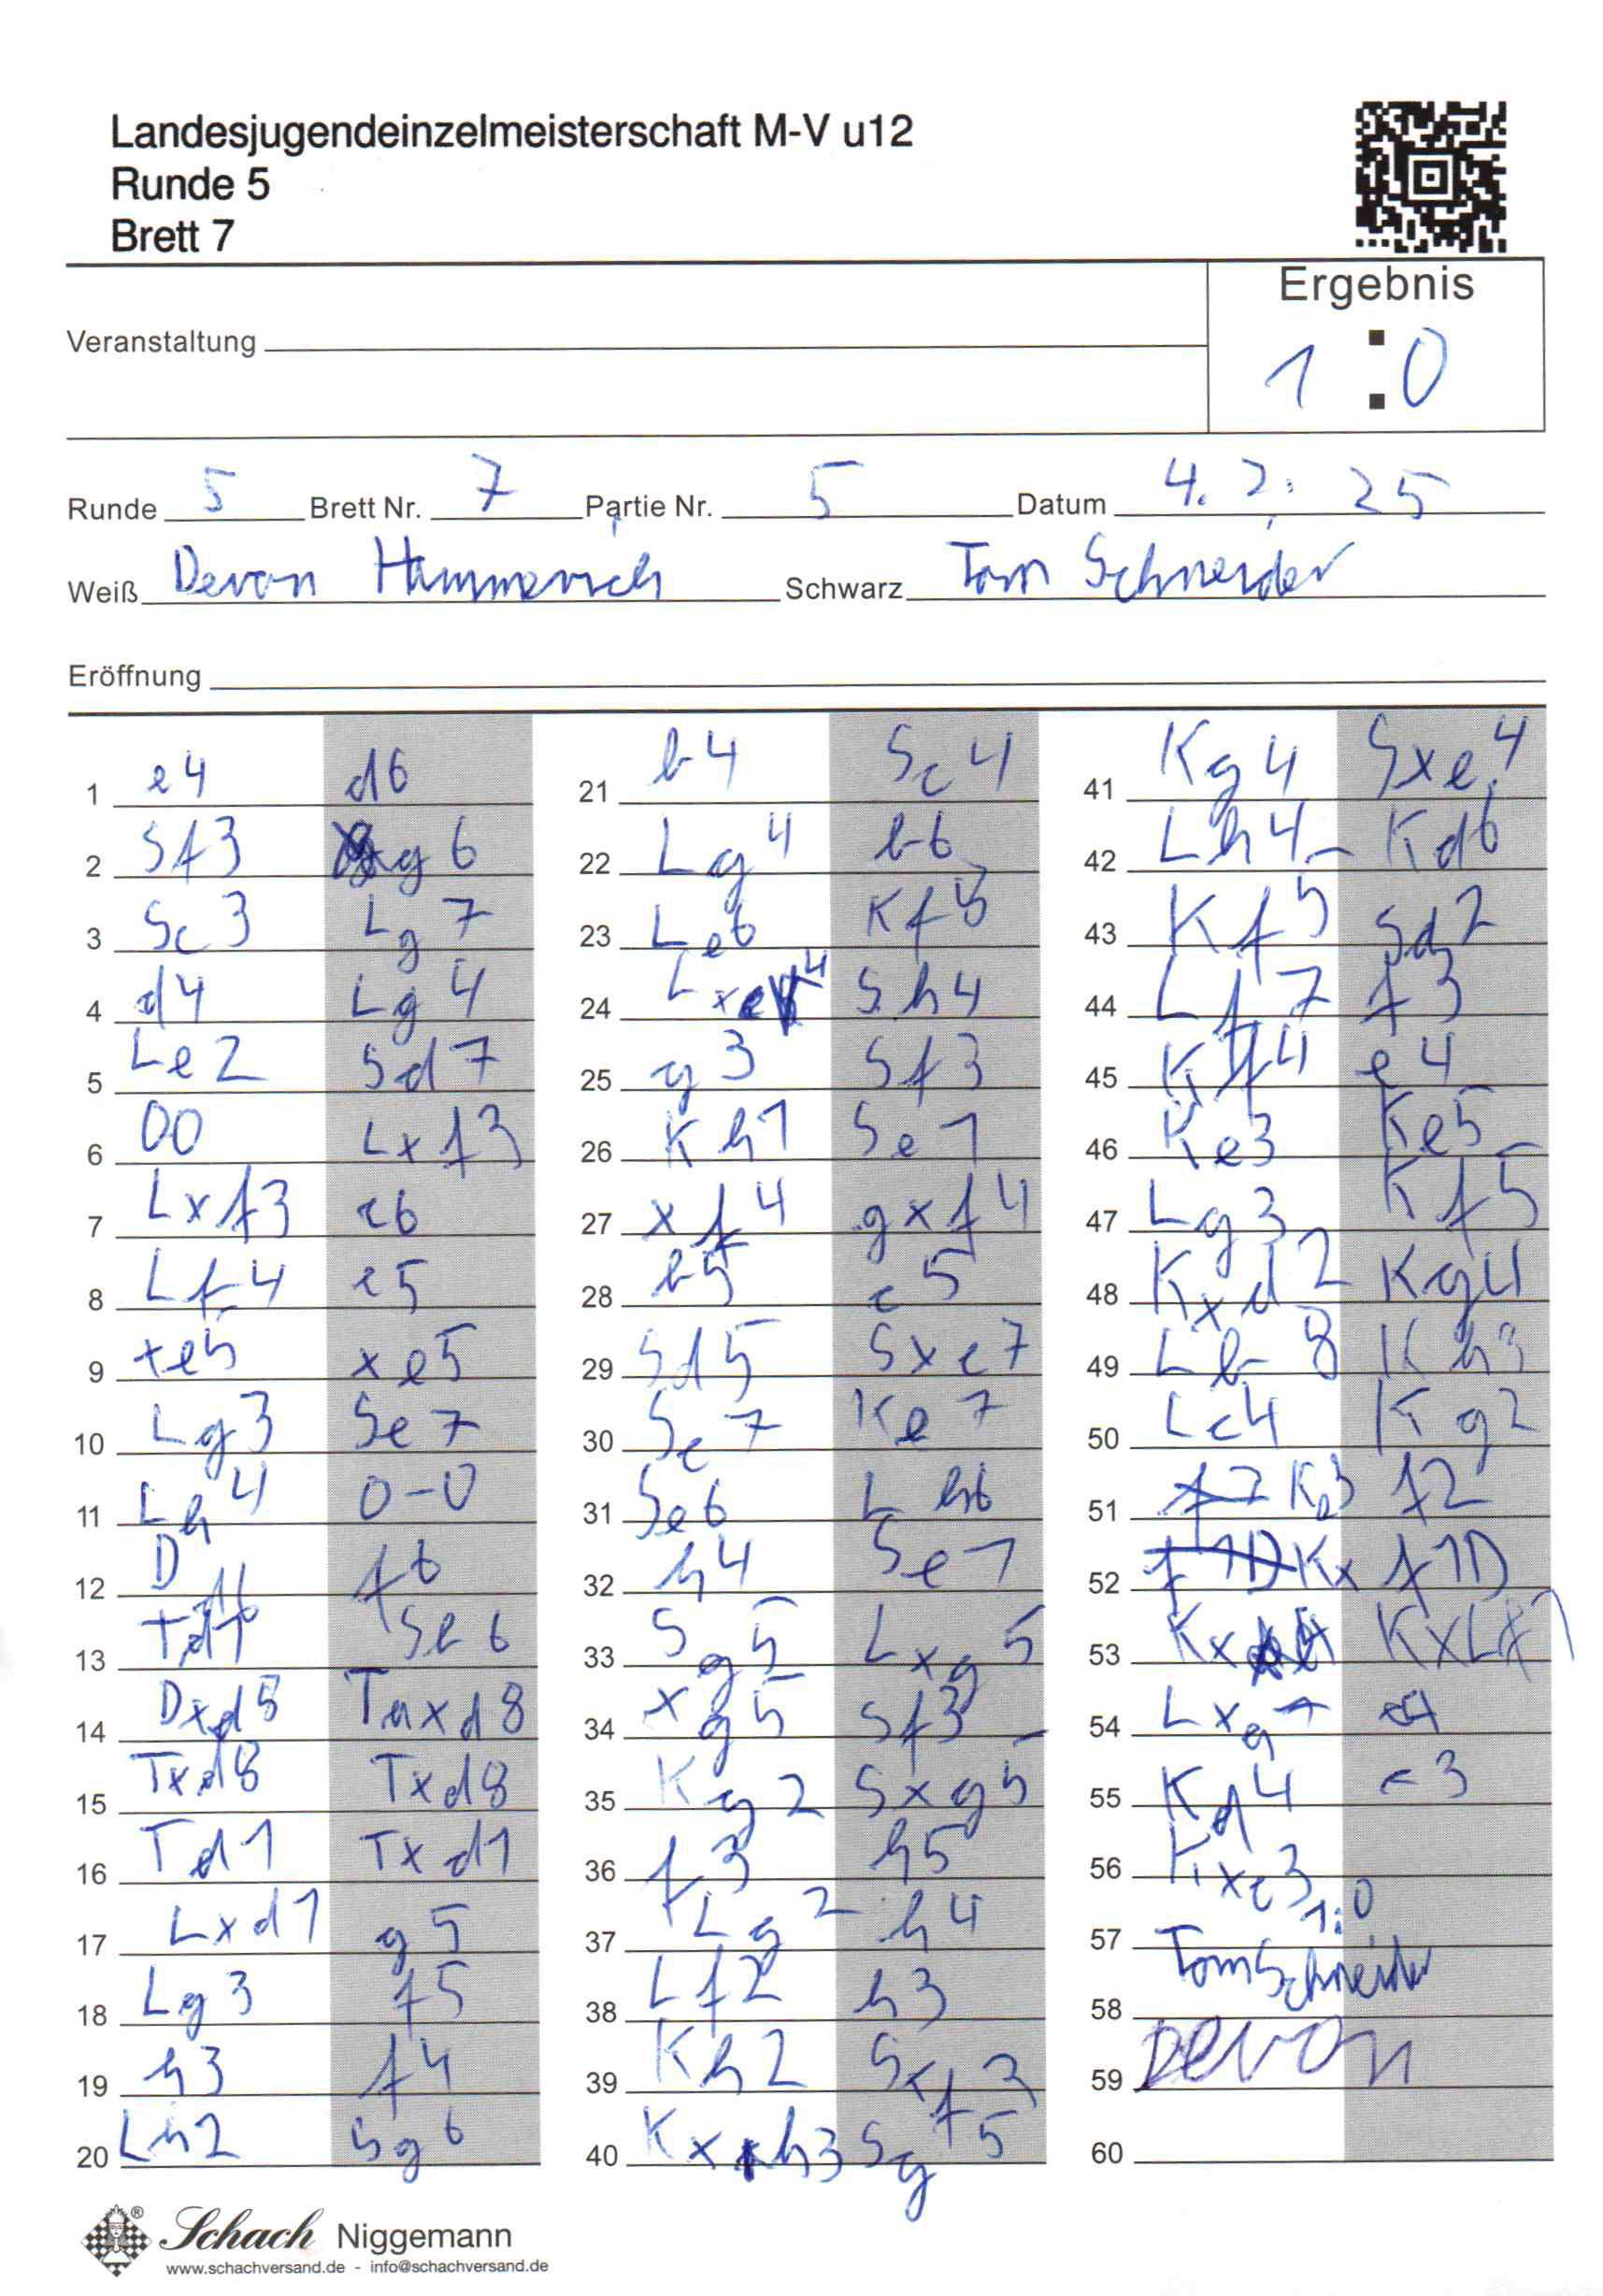 Landesjugendeinzelmeisterschaft M-V u12
Runde 5
Brett 7
Ergebnis
1 : 0
Veranstaltung
Runde 5 Brett Nr. 7 Partie Nr. 5 Datum 4. 2. 25
Weiß Devon Hammerich Schwarz Tom Schneider
Eröffnung
1 e4 d6
2 Sf3 g6
3 Sc3 Lg7
4 d4 Lg4
5 Le2 Sd7
6 00 Lxf3
7 Lxf3 c6
8 Lf4 e5
9 xe5 xe5
10 Lg3 Se7
11 Lh4 0-0
12 D f6
13 Sb6
14 Dxd8 Taxd8
15 Txd8 Txd8
16 Td1 Txd1
17 Lxd1 g5
18 Lg3 f5
19 h3 f4
20 Lh2 Sg6
21 b4 Sc4
22 Lg4 b6
23 Le6 Kf8
24 Lxc4 Sh4
25 g3 Sf3
26 Kh1 Se1
27 xf4 gxf4
28 b5 c5
29 Sd5 Sxc7
30 Sc7 Ke7
31 Se6 Lh6
32 h4 Se1
33 Sg5 Lxg5
34 xg5 Sf3
35 Kg2 Sxg5
36 f3 h5
37 Lg2 h4
38 Lf2 h3
39 Kh2 Sxf3
40 Kxh3 Sg5
41 Kg4 Sxe4
42 Lh4 Kd6
43 Kf5 Sd2
44 Lf7 f3
45 Kf4 e4
46 Ke3 Ke5
47 Lg3 Kf5
48 Kxd2 Kg4
49 Lb8 Kh3
50 Lc4 Kg2
51 Ke3 f2
52 f1D
53 KxLf1
54 Lxa7
55 Kd4 e3
56 Kxe3
1:0
57 Tom Schneider
58
59 Devon
60
Schach Niggemann
www.schachversand.de - info@schachversand.de